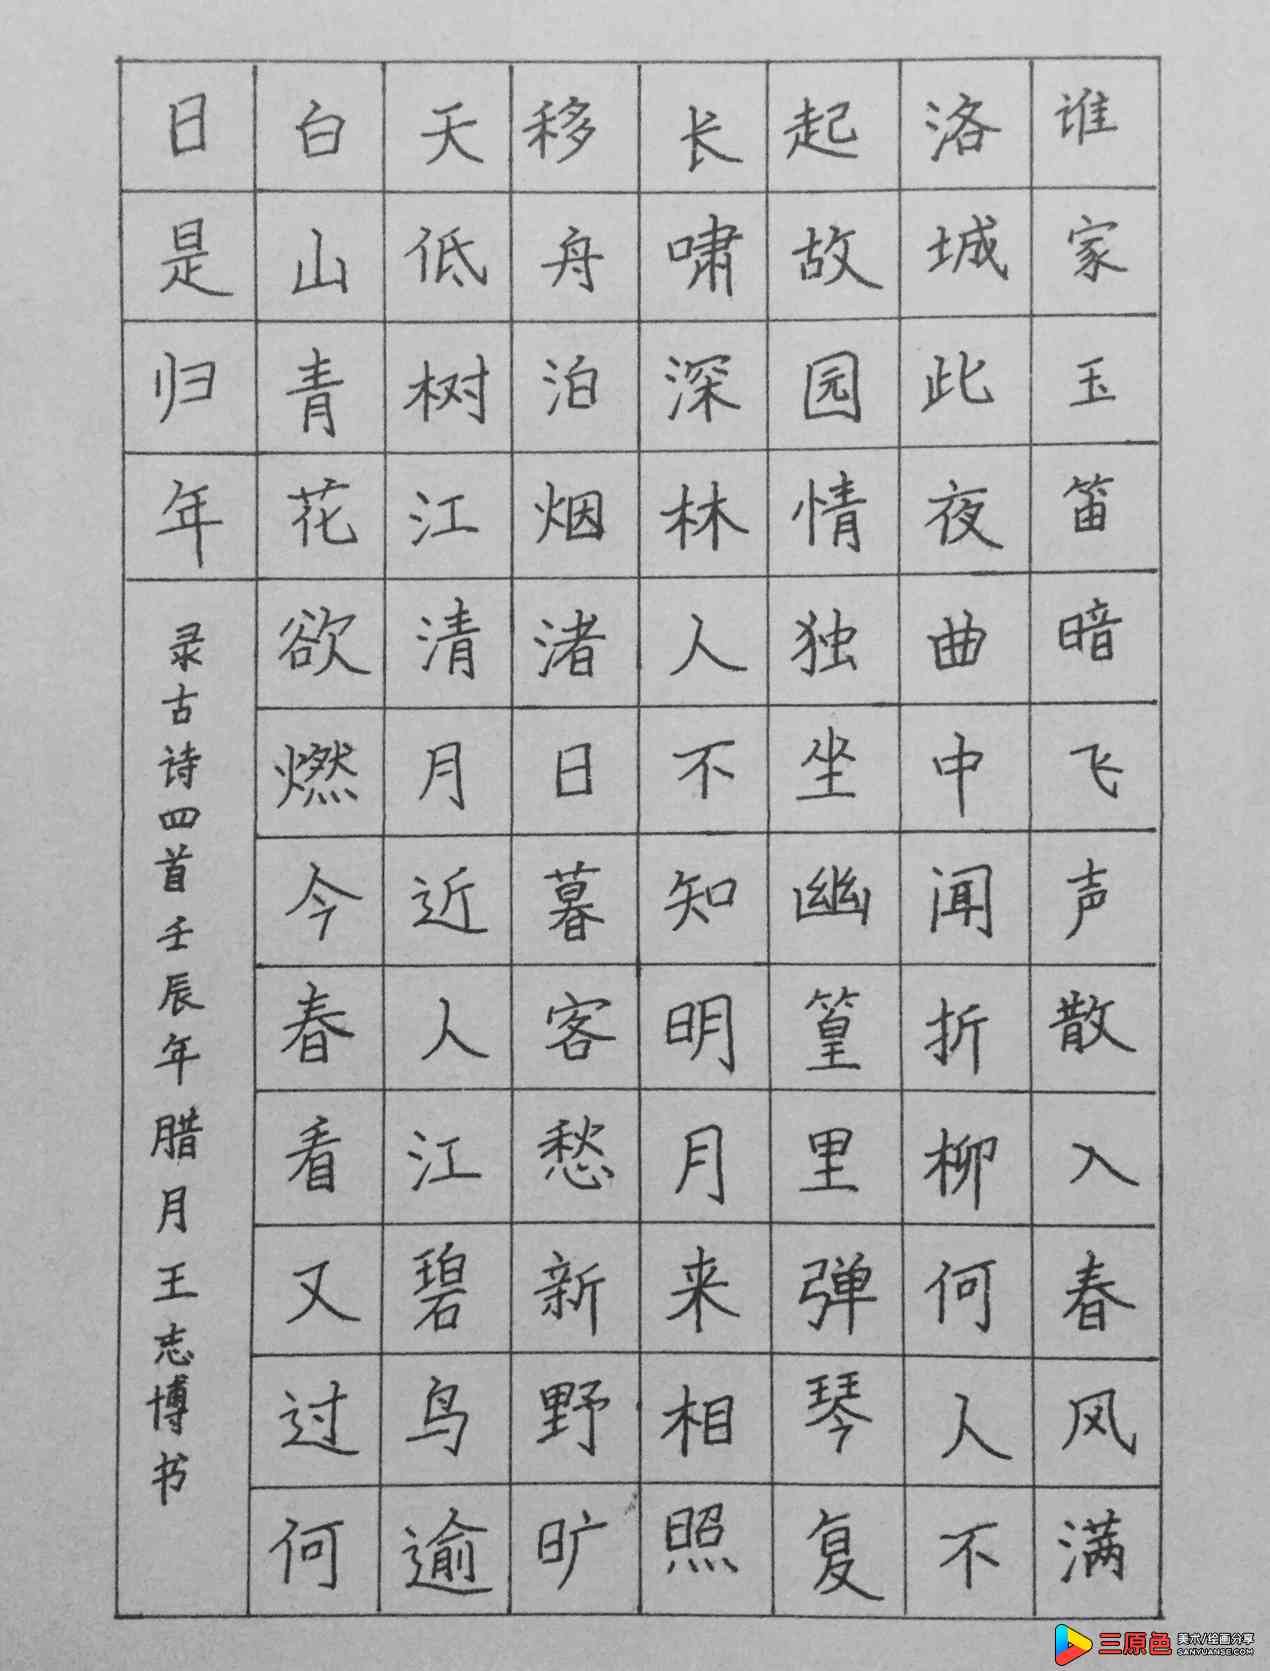 谁家玉笛暗飞声散入春风满
洛城此夜曲中闻折柳何人不
起故园情独坐幽篁里弹琴复
长啸深林人不知明月来相照
移舟泊烟渚日暮客愁新野旷
天低树江清月近人江碧鸟逾
白山青花欲燃今春看又过何
日是归年
录古诗四首壬辰年腊月王志博书
三原色 美术/绘画分享
SANYUANSE.COM